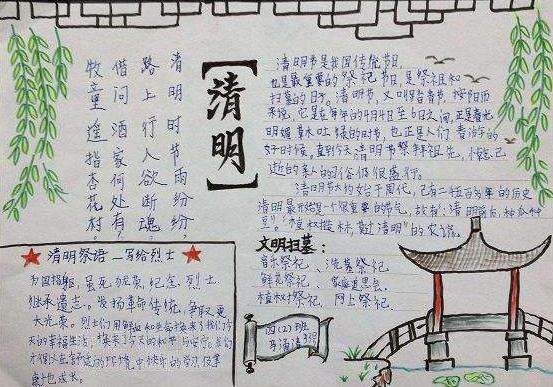 清明时节雨纷纷，
路上行人欲断魂。
借问酒家何处有，
牧童遥指杏花村。
【清明】
清明节是我国传统节日，
也是最重要的祭祀节日，是祭祖和
扫墓的日子。清明节，又叫踏青节，按阳历
来说，它是在每年的4月4日至6日之间，正是春光
明媚草木吐绿的时节，也正是人们春游的
好时候，直到今天清明节祭拜祖先，悼念已
逝的亲人的习俗仍很盛行。
清明节大约始于周代，已有二千五百多年的历史
清明最开始是个很重要的节气，故有：清明前后，种瓜种
豆。"植树造林，莫过清明"的农谚。
文明扫墓：
音乐祭祀、洗墓祭祀
鲜花祭祀、家庭追思会
植树祭祀、网上祭祀
四(2)班
★清明祭语—写给烈士★
为国捐躯，虽死犹荣，纪念烈士
继承遗志。发扬革命传统，争取更
大光荣。烈士们用鲜血和生命换来了我们今
天的幸福生活，换来了今天的和平与安宁。我们
才得以在舒适的环境中快乐的学习